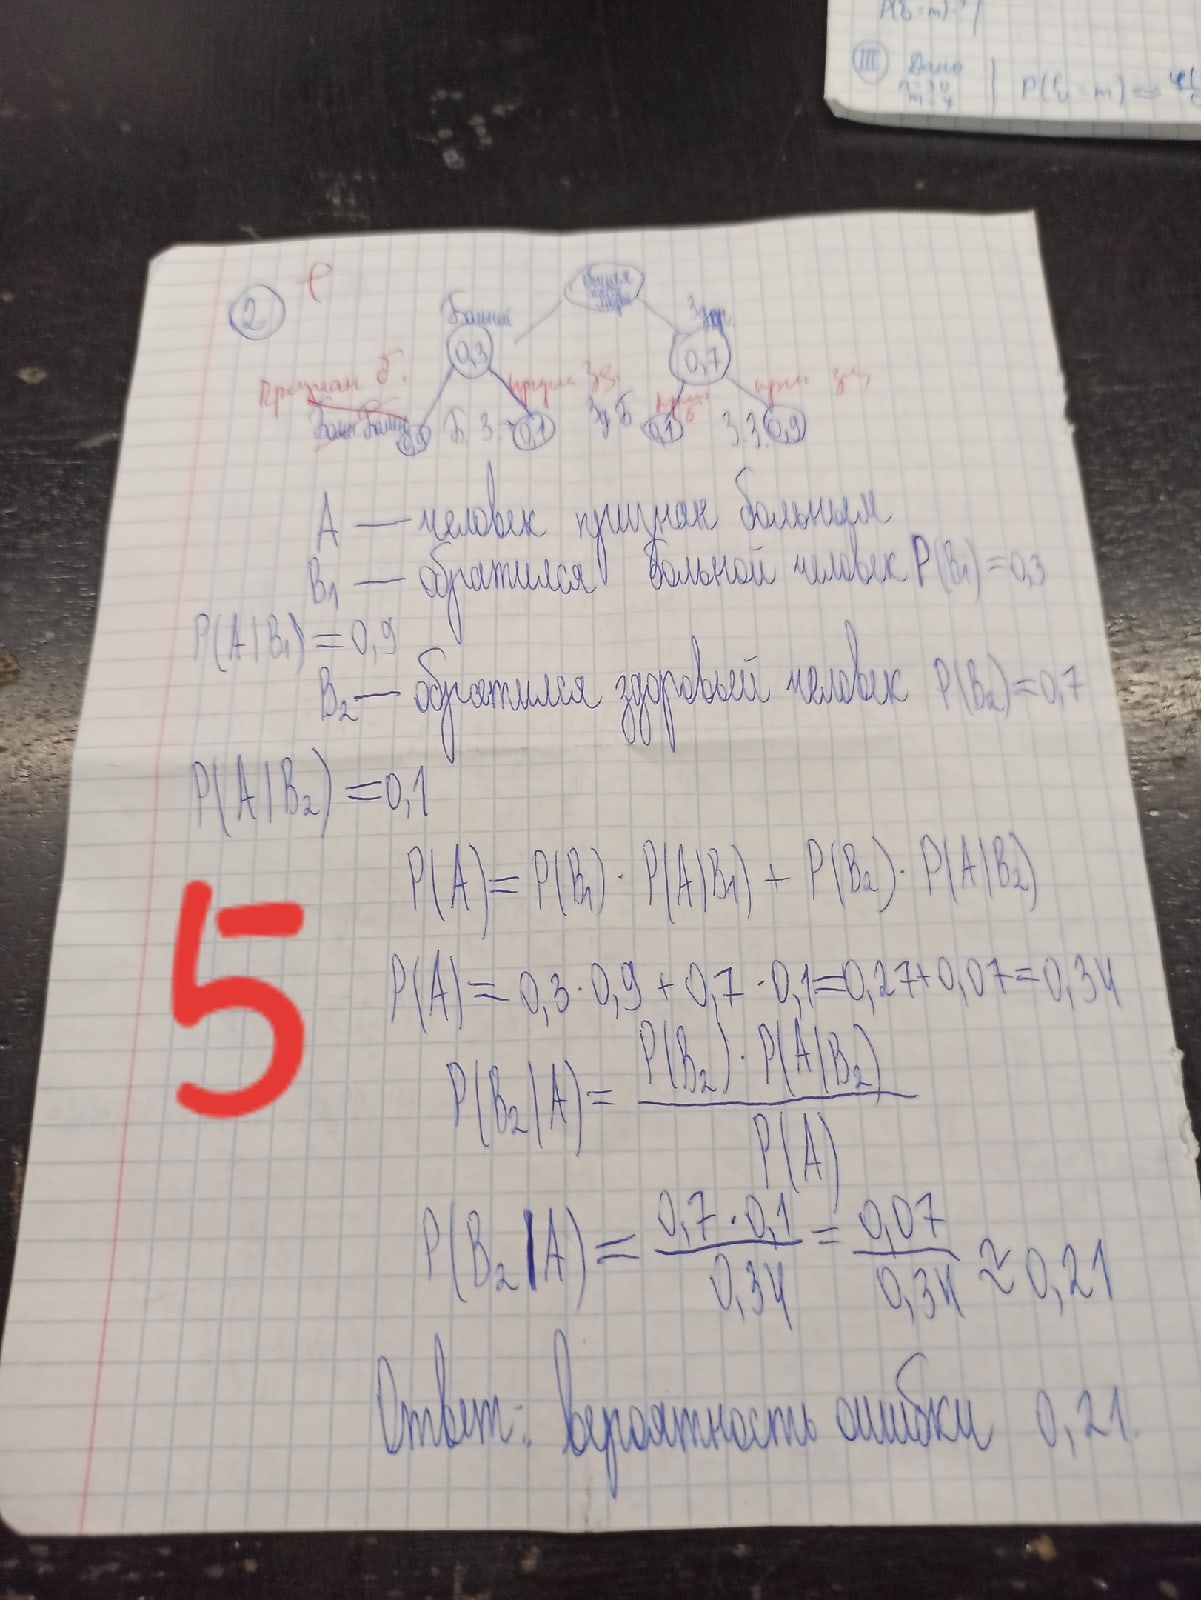 P(ξ=m)-?
III Дано
n=30
m=4
P(ξ=m) ≈
2
Больной
Здор.
0,3
0,7
Признан б.
призн зд.
призн б
призн зд
0,9 Б.З. 0,1 Зд Б 0,1 З.З. 0,9
A — человек признан больным
B₁ — обратился больной человек P(B₁)=0,3
P(A|B₁)=0,9
B₂ — обратился здоровый человек P(B₂)=0,7
P(A|B₂)=0,1
P(A)=P(B₁)·P(A|B₁)+P(B₂)·P(A|B₂)
5
P(A)=0,3·0,9+0,7·0,1=0,27+0,07=0,34
P(B₂|A)= P(B₂)·P(A|B₂)
P(A)
P(B₂|A)= 0,7·0,1 = 0,07 ≈ 0,21
0,34 0,34
Ответ: вероятность ошибки 0,21.